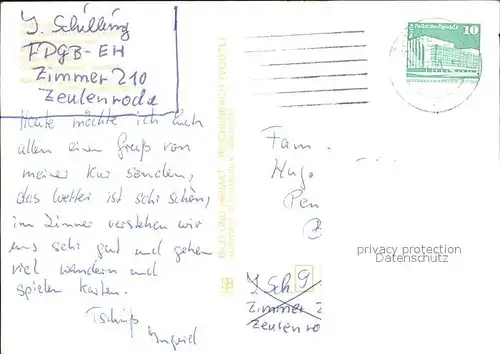 Y. Schilling
FDGB-EH
Zimmer 210
Zeulenroda
Heute möchte ich Euch
allen einen Gruß von
meiner Kur senden,
das Wetter ist sehr schön,
im Zimmer verstehen wir
uns sehr gut und gehen
viel wandern und
spielen Karten.
Tschüß
Ingrid
BILD UND HEIMAT REICHENBACH (VOGTL)
10
Fam.
Hugo
Pen
B
privacy protection
Datenschutz
9
Y. Sch
Zimmer 2
Zeulenro